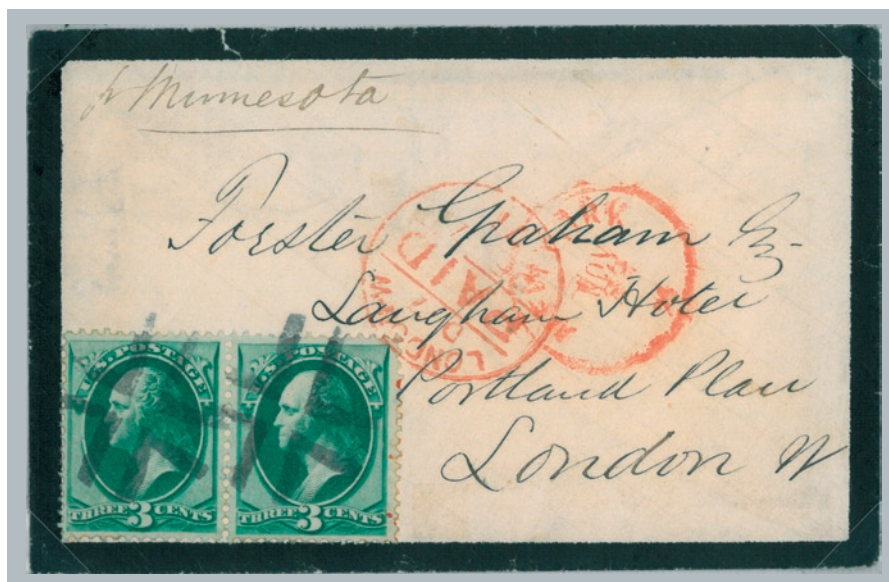 pr Minnesota
Forster Graham Esq
Langham Hotel
Portland Place
London W
LONDON
PAID
NOV
U.S. POSTAGE
THREE 3 CENTS
U.S. POSTAGE
THREE 3 CENTS